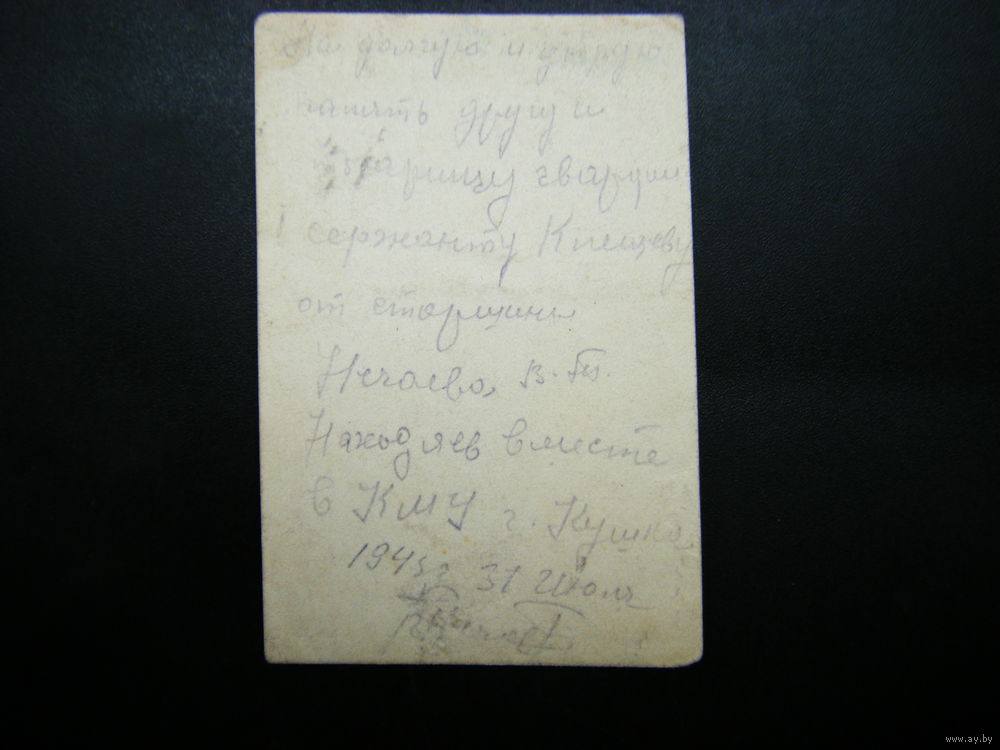 На долгую и добрую
память другу и
товарищу гвардии
сержанту Клещеву
от старшины
Нечаева, В. П.
Находяев вместе
в КМУ г. Кушка
1945 г 31 Июля
www.ay.by